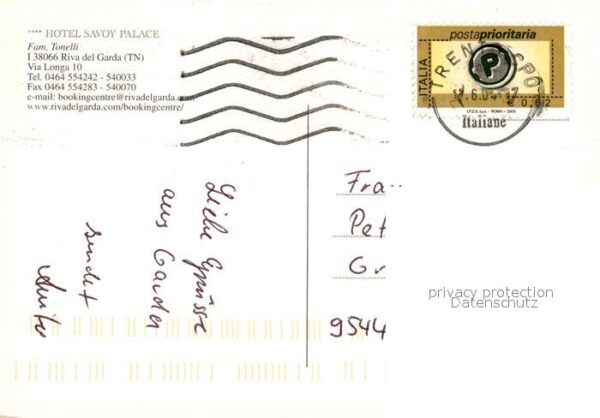 **** HOTEL SAVOY PALACE
Fam. Tonelli
I 38066 Riva del Garda (TN)
Via Longa 10
Tel. 0464 554242 - 540033
Fax 0464 554283 - 540070
e-mail: bookingcentre@rivadelgarda.com
www.rivadelgarda.com/bookingcentre/
postaprioritaria
ITALIA
P
€ 0,62
I.P.Z.S. S.p.A. - ROMA - 2002
Italiane
Liebe Grüsse
aus Garda
sendet
Fra
Pet
Gr
9544
privacy protection
Datenschutz